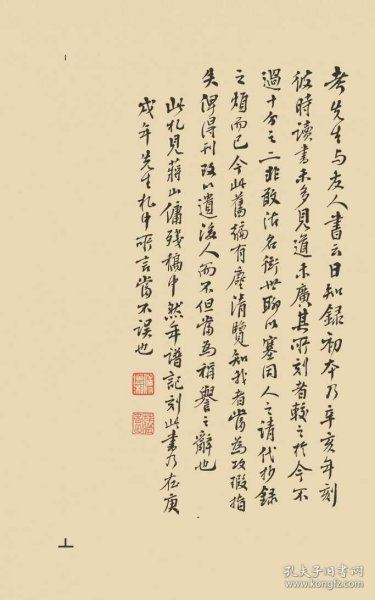 考先生与友人書云日知錄初本乃辛亥年刻
彼時讀書未多見道未廣其所刻者較之於今不
過十分之二非敢沽名衒世聊以塞同人之請代抄錄
之煩而已今此舊編有塵清覽知我者當為攻瑕指
失俾得刊改以遺後人而不但當為稱譽之辭也
此札見蔣山傭殘稿中然年譜記刻此書乃在庚
戌年先生札中所言當不誤也
孔夫子旧书网